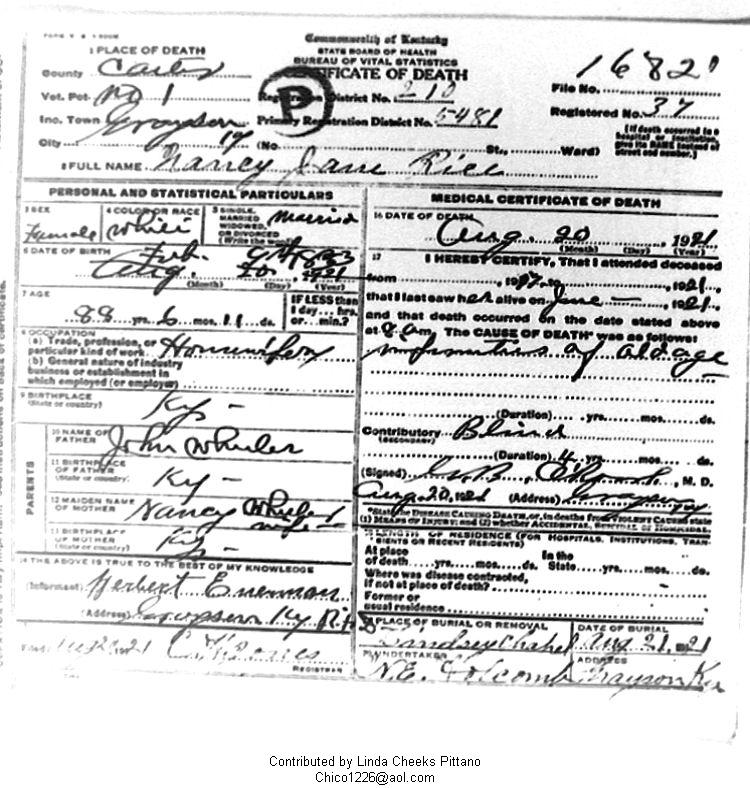 Commonwealth of Kentucky
STATE BOARD OF HEALTH
BUREAU OF VITAL STATISTICS
CERTIFICATE OF DEATH
1 PLACE OF DEATH
County Carter
Vot. Pct. No 1
Inc. Town Grayson
City
(No. St., Ward)
Registration District No. 210
Primary Registration District No. 5481
P
File No. 16820
Registered No. 37
(If death occurred in a hospital or institution give its NAME instead of street and number.)
2 FULL NAME Nancy Jane Rice
PERSONAL AND STATISTICAL PARTICULARS
3 SEX Female
4 COLOR OR RACE White
5 SINGLE, MARRIED WIDOWED, OR DIVORCED (Write the word) Married
6 DATE OF BIRTH Feb. 9
Aug. 20, 1921
(Month) (Day) (Year)
7 AGE
88 yrs. 6 mos. 11 ds.
IF LESS than 1 day... hrs. or... min.?
8 OCCUPATION
(a) Trade, profession, or particular kind of work Housewifery
(b) General nature of industry
business or establishment in
which employed (or employer)
9 BIRTHPLACE
(State or country) Ky -
PARENTS
10 NAME OF FATHER John Wheeler
11 BIRTHPLACE OF FATHER
(State or country) Ky -
12 MAIDEN NAME OF MOTHER Nancy Wheeler
wife -
13 BIRTHPLACE OF MOTHER
(State or country) Ky -
14 THE ABOVE IS TRUE TO THE BEST OF MY KNOWLEDGE
(Informant) Herbert
(Address) Grayson Ky
1921
REGISTRAR
MEDICAL CERTIFICATE OF DEATH
16 DATE OF DEATH
Aug. 20, 1921
(Month) (Day) (Year)
17 I HEREBY CERTIFY, That I attended deceased
from , 19 , 1921,
that I last saw her alive on June - , 1921,
and that death occurred on the date stated above
at 8 am. The CAUSE OF DEATH* was as follows:
infirmities of old age
(Duration) yrs. mos. ds.
Contributory Blind
(SECONDARY)
(Duration) 4 yrs. mos. ds.
(Signed) , M. D.
Aug. 20, 1921 (Address) Grayson Ky
*State the DISEASE CAUSING DEATH, or, in deaths from VIOLENT CAUSES state
(1) MEANS OF INJURY; and (2) whether ACCIDENTAL, SUICIDAL or HOMICIDAL.
18 LENGTH OF RESIDENCE (FOR HOSPITALS, INSTITUTIONS, TRANSIENTS OR RECENT RESIDENTS)
At place of death yrs. mos. ds. In the State yrs. mos. ds.
Where was disease contracted,
if not at place of death?
Former or
usual residence
19 PLACE OF BURIAL OR REMOVAL
Lindsey Chapel
DATE OF BURIAL
Aug 21, 1921
20 UNDERTAKER
N.E. Holcomb
ADDRESS
Grayson Ky
Contributed by Linda Cheeks Pittano
Chico1226@aol.com